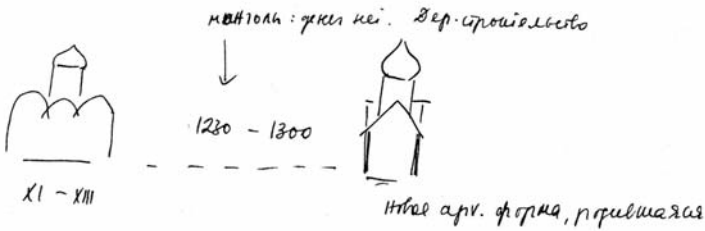 монголы: денег нет. Дер. строительство
1230 – 1300
XI – XIII
Новая арх. форма, родившаяся